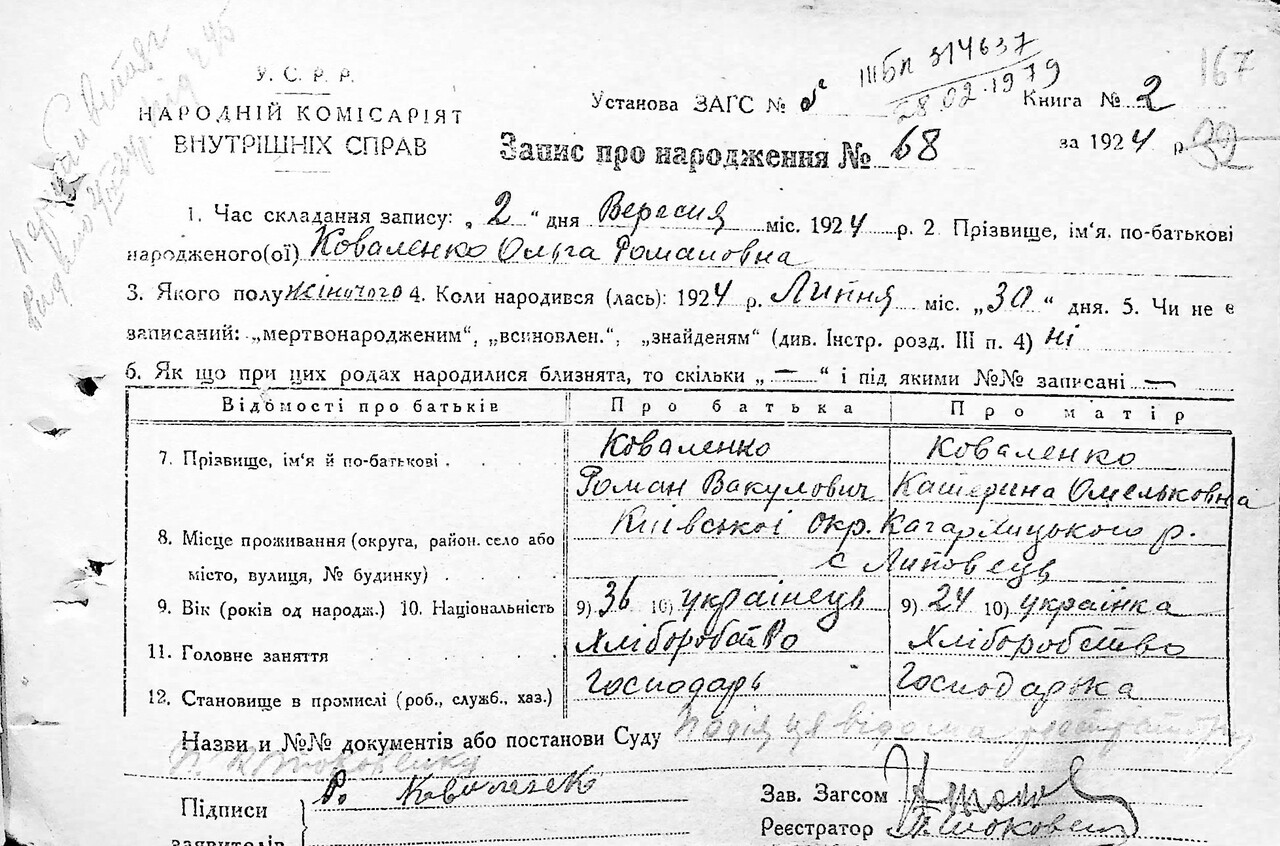 У. С. Р. Р.
НАРОДНІЙ КОМІСАРІЯТ
ВНУТРІШНІХ СПРАВ
ІІІБП 314637
28.02.1979
167
Установа ЗАГС № 5 Книга № 2
Запис про народження № 68
за 1924 р.
92
1. Час складання запису: „ 2 “ дня Вересня міс. 1924 р. 2. Прізвище, ім'я, по-батькові
народженого(ої) Коваленко Ольга Романовна
3. Якого полу жіночого 4. Коли народився (лась): 1924 р. Липня міс. „30“ дня. 5. Чи не є
записаний: „мертвонародженим“, „всиновлен.“, „знайденям“ (див. Інстр. розд. III п. 4) ні
6. Як що при цих родах народилися близнята, то скільки „ — “ і під якими №№ записані —
Відомості про батьків Про батька Про матір
7. Прізвище, ім'я й по-батькові . Коваленко Коваленко
Роман Вакулович Катерина Омельковна
8. Місце проживання (округа, район. село або Київської окр. Кагарлицького р.
місто, вулиця, № будинку) с Липовець
9. Вік (років од народж.) 10. Національність 9) 36 10) українець 9) 24 10) українка
11. Головне заняття Хліборобство Хліборобство
12. Становище в промислі (роб., служб., хаз.) Господарь Господарька
Назви и №№ документів або постанови Суду Подія ця відома
Підписи Р. Коваленко
заявителів
Зав. Загсом
Реєстратор